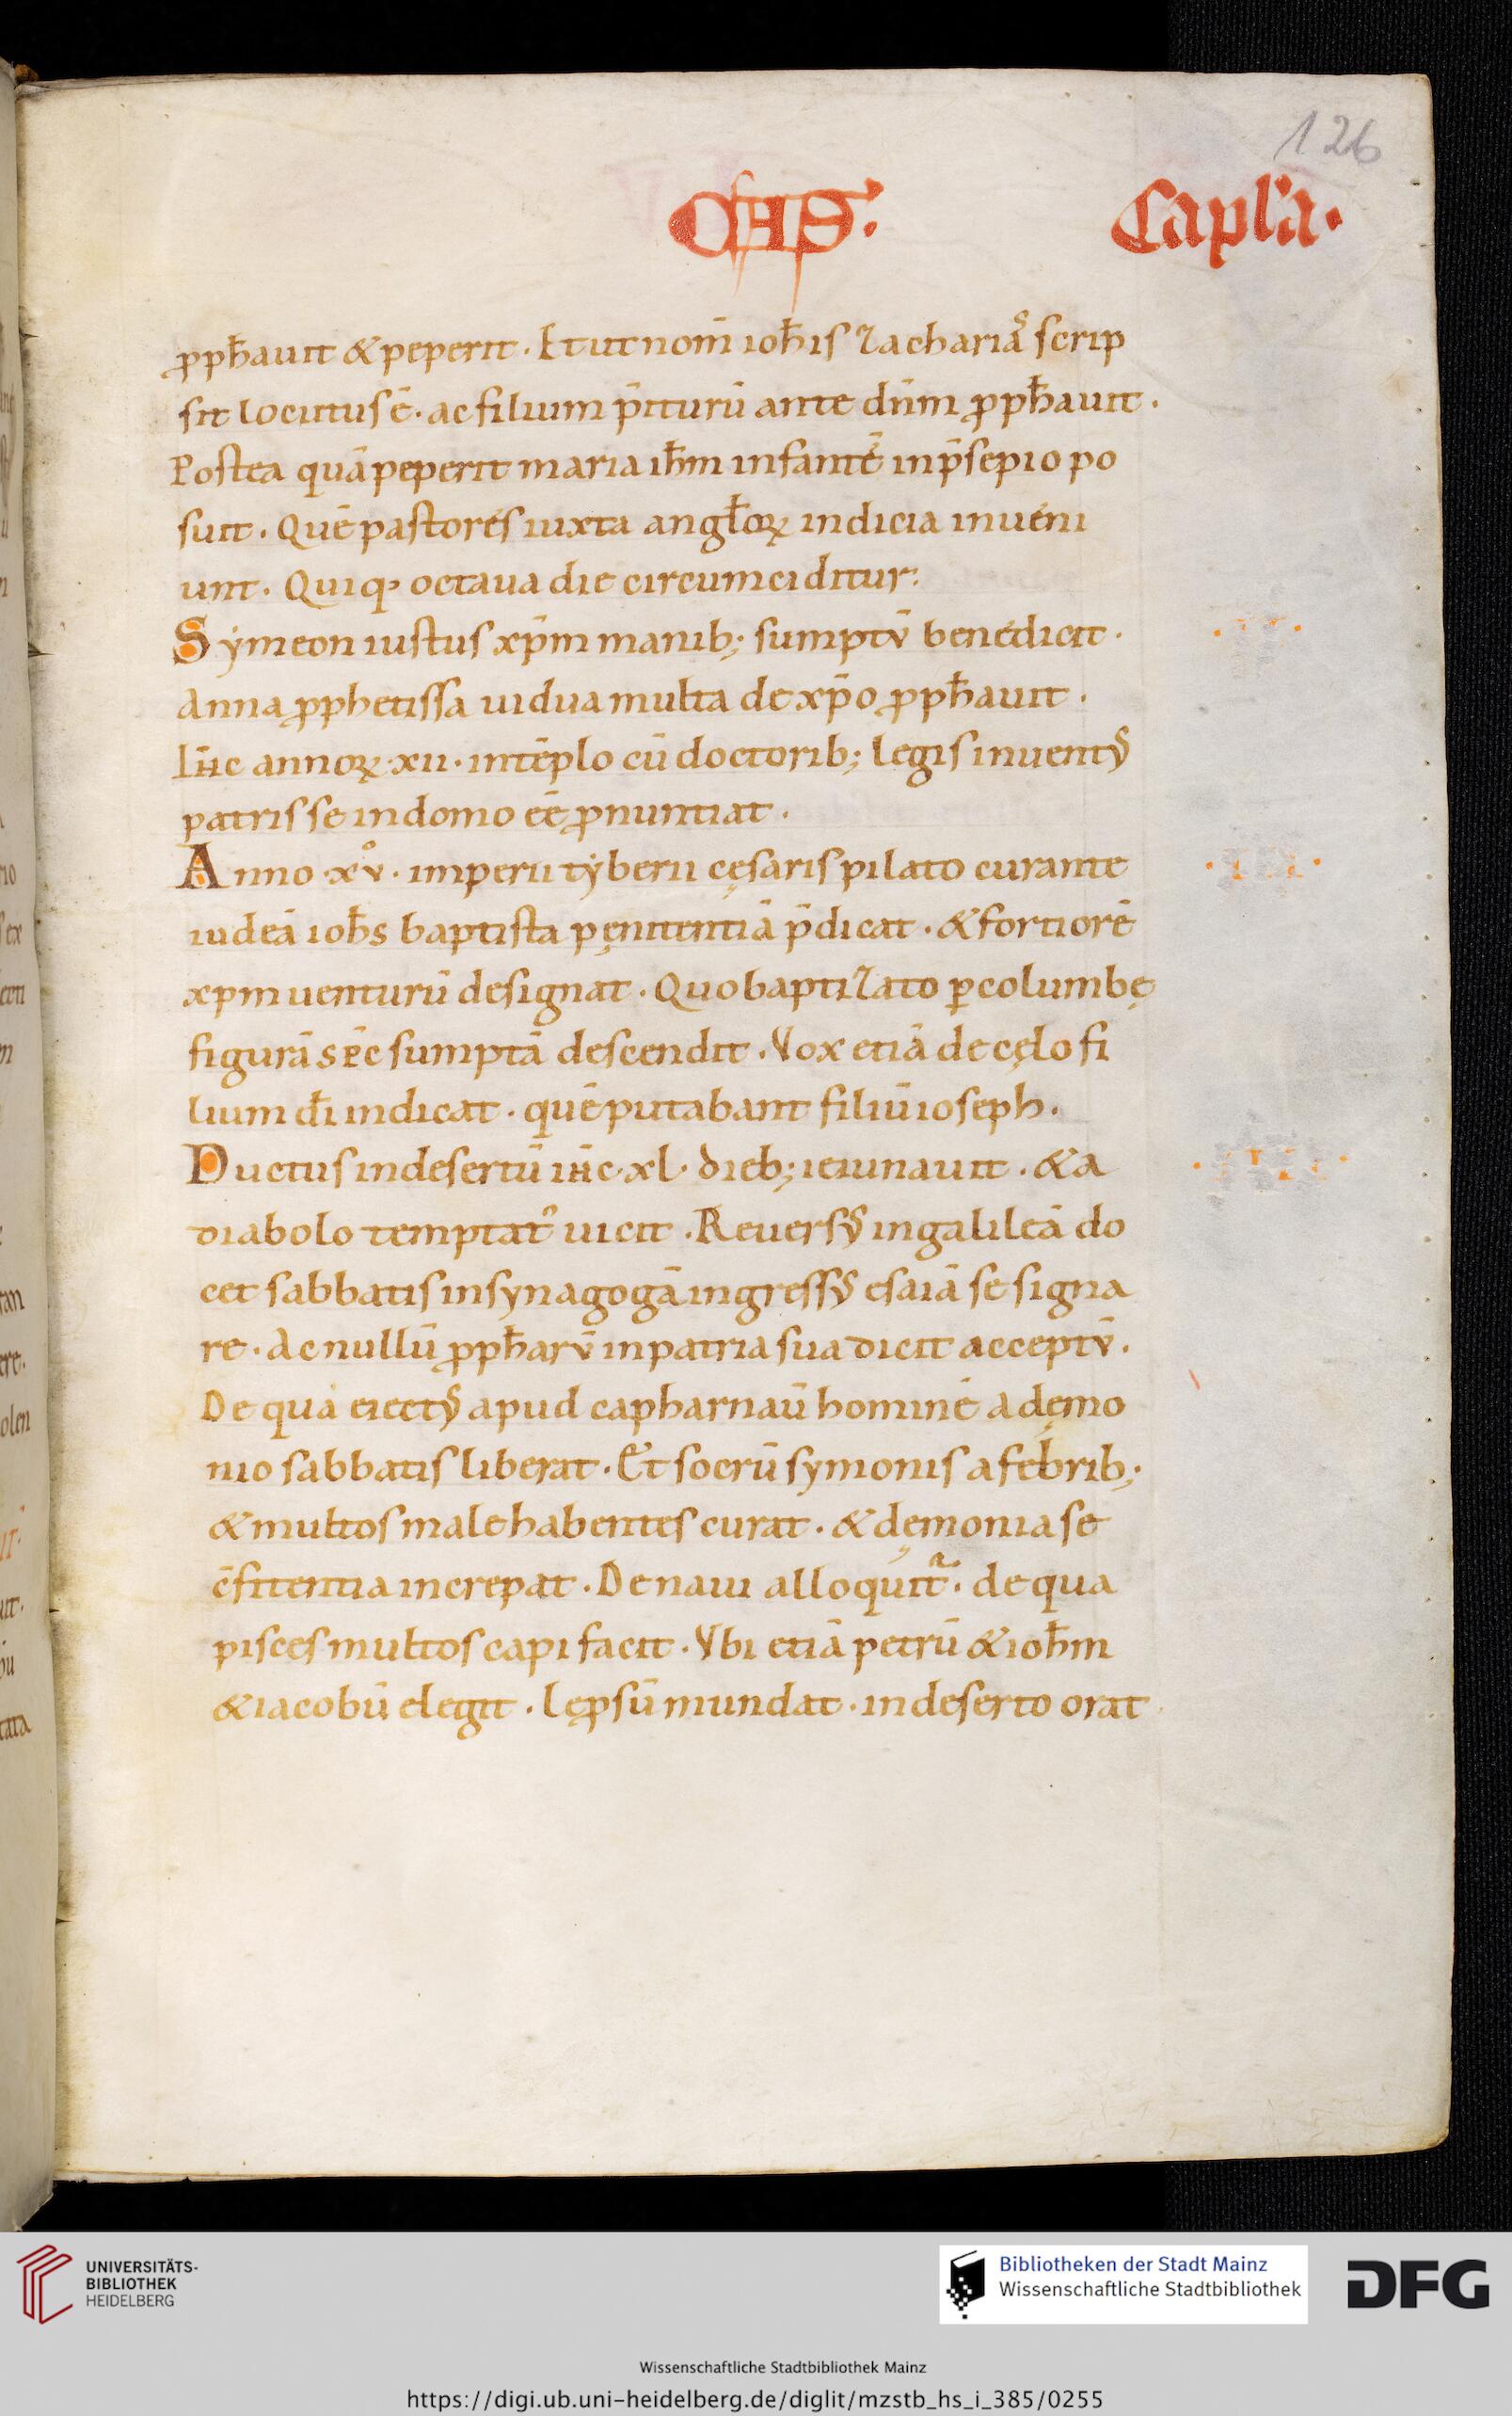 126
Capl'a·
ꝓph̄auit & peperit. Et ut nom̄ ioh̄is zachariaˢ scrip
sit locutus ē. ac filium p̄iturū ante dn̄m ꝓph̄auit.
Postea quā peperit maria ih̄m infantē in p̄sepio po
suit. Quē pastores iuxta angl̄oꝝ indicia inueni
unt. Quiq; octaua die circumciditur:
Symeon iustus xp̄m manib; sumptū benedicit.
Anna ꝓphetissa uidua multa de xp̄o ꝓph̄auit.
Ih̄c annoꝝ ·xii· in tēplo cū doctorib; legis inuentꝰ
patris se in domo eē ꝓnuntiat.
Anno ·xv°· imperii tyberii cęsaris pilato curante
iudeā ioh̄s baptista pęnitentiā p̄dicat. & fortiorē
xpm uenturū designat. Quo baptizato ꝑ columbę
figurā sp̄c sumptā descendit. Vox etiā de cęlo fi
lium dī indicat. quē putabant filiū ioseph.
Ductus in desertū ih̄c ·xl· dieb; ieiunauit. & a
diabolo temptatꝰ uicit. Reuersꝰ in galileā do
cet sabbatis in synagogā ingressꝰ esaiā se signa
re. Ac nullū ꝓph̄arū in patria sua dicit acceptū.
De qua eiectꝰ apud capharnaū hominē a dęmo
nio sabbatis liberat. Et socrū symonis a febrib;
& multos male habentes curat. & dęmonia se
c̄fitentia increpat. De naui alloquit᷑. de qua
pisces multos capi facit. Vbi etiā petrū & ioh̄m
& iacobū elegit. Lęꝓsū mundat. in deserto orat
UNIVERSITÄTS-
BIBLIOTHEK
HEIDELBERG
Bibliotheken der Stadt Mainz
Wissenschaftliche Stadtbibliothek
DFG
Wissenschaftliche Stadtbibliothek Mainz
https://digi.ub.uni-heidelberg.de/diglit/mzstb_hs_i_385/0255